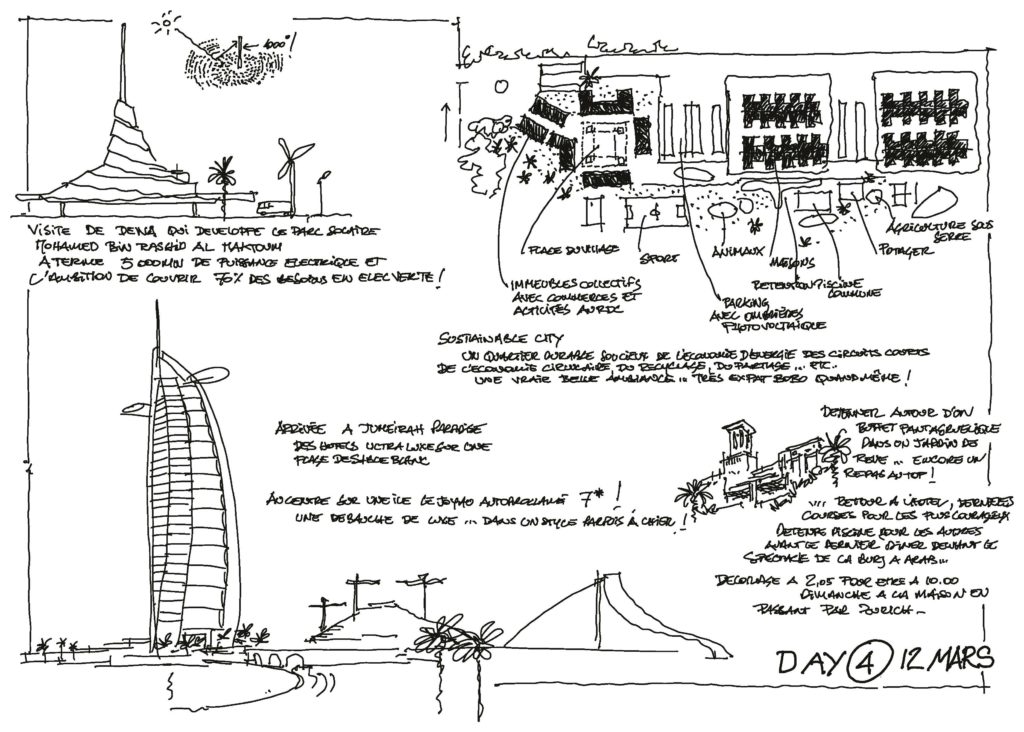 1000°/
VISITE DE DEWA QUI DEVELOPPE LE PARC SOLAIRE
MOHAMED BIN RASHID AL MAKTOUM
A TERME 5 000 MW DE PUISSANCE ELECTRIQUE ET
L'AMBITION DE COUVRIR 70% DES BESOINS EN ELECTRICITÉ !
PLACE DU VILLAGE
SPORT
ANIMAUX
MAISONS
AGRICULTURE SOUS
SERRE
POTAGER
IMMEUBLES COLLECTIFS
AVEC COMMERCES ET
ACTIVITÉS AU RDC
RETENTION PISCINE
COMMUNE
PARKING
AVEC OMBRIÈRES
PHOTOVOLTAIQUE
SUSTAINABLE CITY
UN QUARTIER DURABLE SOUCIEUX DE L'ÉCONOMIE D'ENERGIE DES CIRCUITS COURTS
DE L'ÉCONOMIE CIRCULAIRE, DU RECYCLAGE, DU PARTAGE ... ETC..
UNE VRAIE BELLE AMBIANCE ... TRÈS EXPAT BOBO QUAND MÊME !
ARRIVÉE A JUMEIRAH PARADISE
DES HOTELS ULTRA LUXE SUR UNE
PLAGE DE SABLE BLANC
AU CENTRE SUR UNE ILE LE AUTOPROCLAMÉ 7* !
UNE DEBAUCHE DE LUXE ... DANS UN STYLE PARFOIS À CHIER !
DEJEUNER AUTOUR D'UN
BUFFET PANTAGRUELIQUE
DANS UN JARDIN DE
REVE ... ENCORE UN
REPAS AU TOP !
... RETOUR A L'HOTEL, DERNIÈRES
COURSES POUR LES PLUS COURAGEUX
DETENTE PISCINE POUR LES AUTRES
AVANT LE DERNIER DINER DEVANT LE
SPECTACLE DE LA BURJ A ARAB...
DECOLLAGE A 2,05 POUR ETRE A 10.00
DIMANCHE A LA MAISON EN
PASSANT PAR ZURICH -
DAY 4 12 MARS